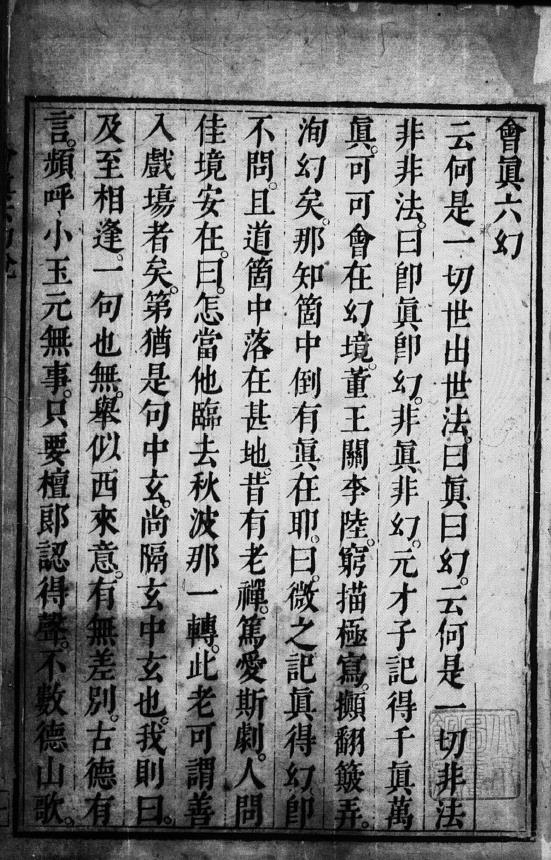 會眞六幻
云何是一切世出世法。曰眞曰幻。云何是一切非法
非非法。曰卽眞卽幻。非眞非幻。元才子記得千眞萬
眞。可可會在幻境。董王關李陸。窮描極寫。攧翻簸弄。
洵幻矣。那知箇中倒有眞在耶。曰。微之記眞得幻。卽
不問。且道箇中落在甚地。昔有老禪。篤愛斯劇。人問
佳境安在。曰。怎當他臨去秋波那一轉。此老可謂善
入戲場者矣。第猶是句中玄。尚隔玄中玄也。我則曰。
及至相逢。一句也無。舉似西來意。有無差別。古德有
言。頻呼小玉元無事。只要檀郎認得聲。不數德山歌。